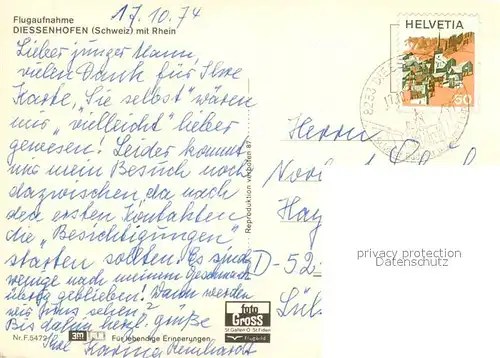 17.10.74
Flugaufnahme
DIESSENHOFEN (Schweiz) mit Rhein
Lieber junger Mann,
vielen Dank für Ihre
Karte, „Sie selbst" wären
mir „vielleicht" lieber
gewesen! Leider kommt
mir mein Besuch noch
dazwischen da nach
den ersten Kontakten
die „Besichtigungen"
starten sollten. Es sind
wenige nach meinem Geschmack
übrig geblieben! Wann werden
wir uns sehen?
Bis dahin herzl. Grüße
Ihre Karin Reinhardt
Nr. F. 5472
Für lebendige Erinnerungen
Reproduktion verboten 87
foto
GROSS
St Gallen O. St. Fiden
Flugbild
HELVETIA
50
8253 DIESSENHOFEN
Herrn
Hay
D-52
privacy protection
Datenschutz